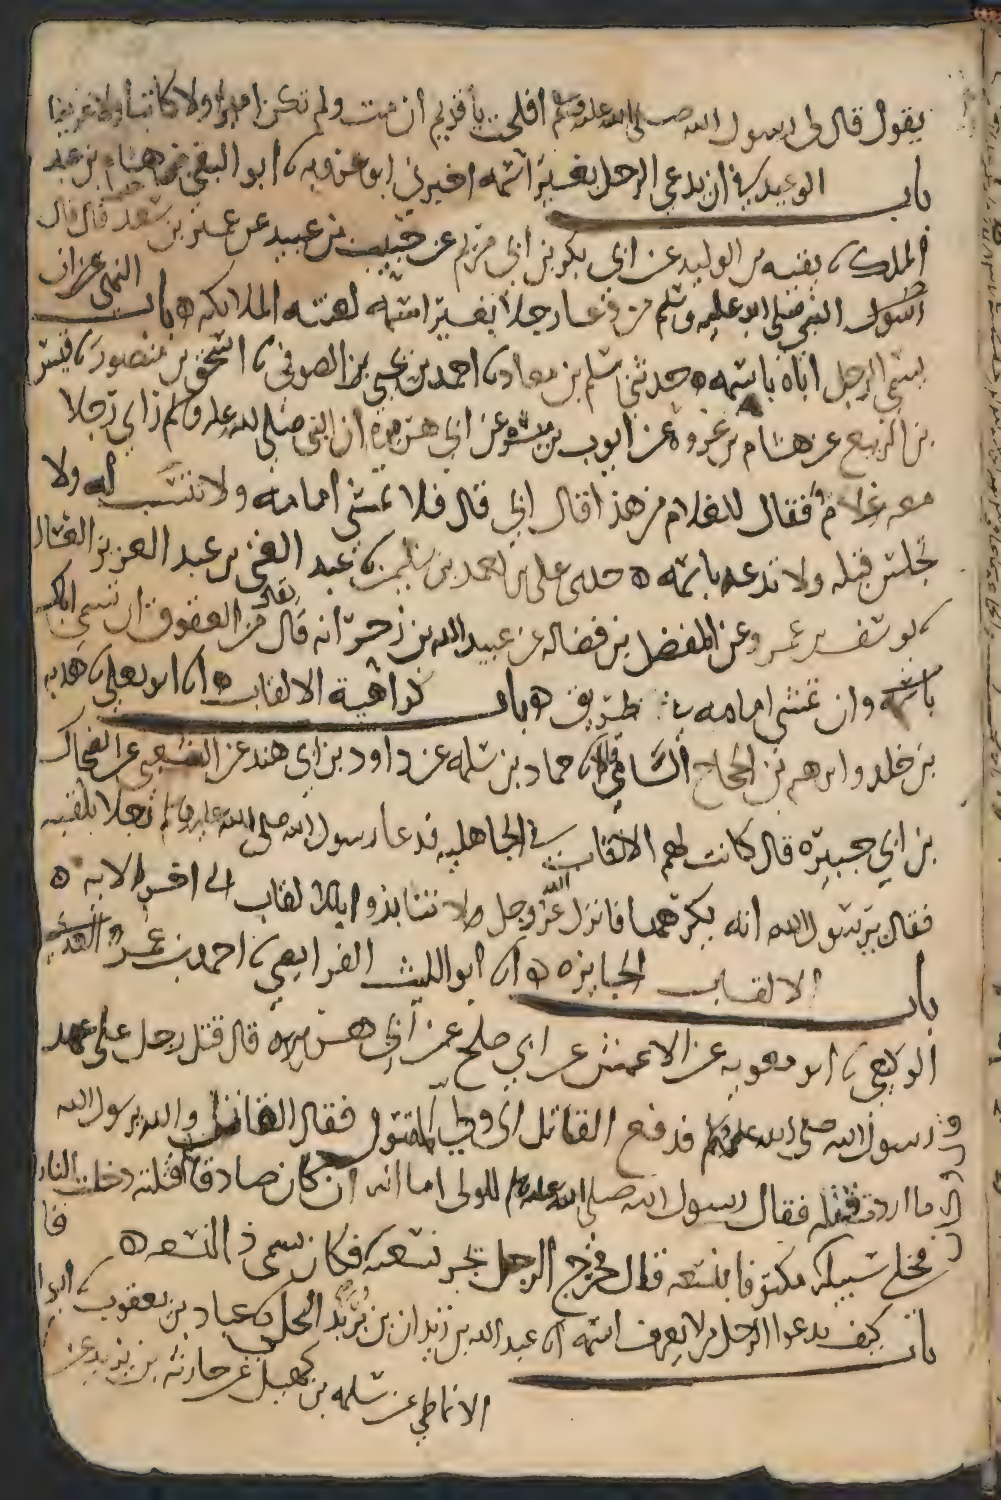 يقول قال لي رسول الله صلى الله عليه وسلم افلحت يا قديم ان مت ولم تكن اميرا ولا كاتبا ولا عريفا
باب الوعيد في ان يدعى الرجل بغير اسمه اخبرني ابو عروبه ابو التقي هشام بن عبد
الملك بقيه بن الوليد عن ابي بكر بن ابي مريم عن حبيب بن عبيد عن عمير بن سعد قال قال
رسول النبي صلى الله عليه وسلم من دعا رجلا بغير اسمه لعنته الملائكه ه باب النهي عن ان
يسمي الرجل اباه باسمه ه حدثني سلم بن معاد احمد بن يحيى الصوفي اسحق بن منصور قيس
بن الربيع عن هشام بن عروه عن ايوب بن ميسره عن ابي هريره ان النبي صلى الله عليه وسلم راى رجلا
معه غلام فقال للغلام من هذا قال ابي قال فلا تمشي امامه ولا تستسب له ولا
تجلس قبله ولا تدعه باسمه ه علي بن احمد بن سليمن عبد الغني بن عبد العزيز العسال
يوسف بن عمرو عن المفضل بن فضاله عن عبيد الله بن زحر انه قال يقال من العقوق ان تسمي اباك
باسمه وان تمشي امامه في طريق ه باب كراهية الالقاب ه ابو يعلى هدبه
بن خلد وابرهيم بن الحجاج السامي قالا حماد بن سلمه عن داود بن ابي هند عن الشعبي عن الضحاك
بن ابي جبيره قال كانت لهم الالقاب في الجاهليه فدعا رسول الله صلى الله عليه وسلم رجلا بلقبه
فقال يرسول الله انه يكرهها فانزل الله عز وجل ولا تنابذوا بالالقاب الى اخر الايه ه
باب الالقاب الجايزه ه ابو الليث الفرايضي احمد بن عمر
الوكيعي ابو معويه عن الاعمش عن ابي صلح عن ابي هريره قال قتل رجل على عهد
رسول الله صلى الله عليه وسلم فدفع القاتل الى ولي المقتول فقال القاتل والله يرسول الله
ما اردت قتله فقال رسول الله صلى الله عليه وسلم للولي اما انه ان كان صادقا فقتلته دخلت النار
فخلى سبيله مكتوفا بنسعه قال فخرج الرجل يجر نسعته فكان يسمى ذا النسعه ه
باب كيف يدعوا الرجل من لا يعرف اسمه عبد الله بن زيدان بن يزيد البجلي عباد بن يعقوب
الانماطي عن سلمه بن كهيل عن جاريه بن يزيد عن